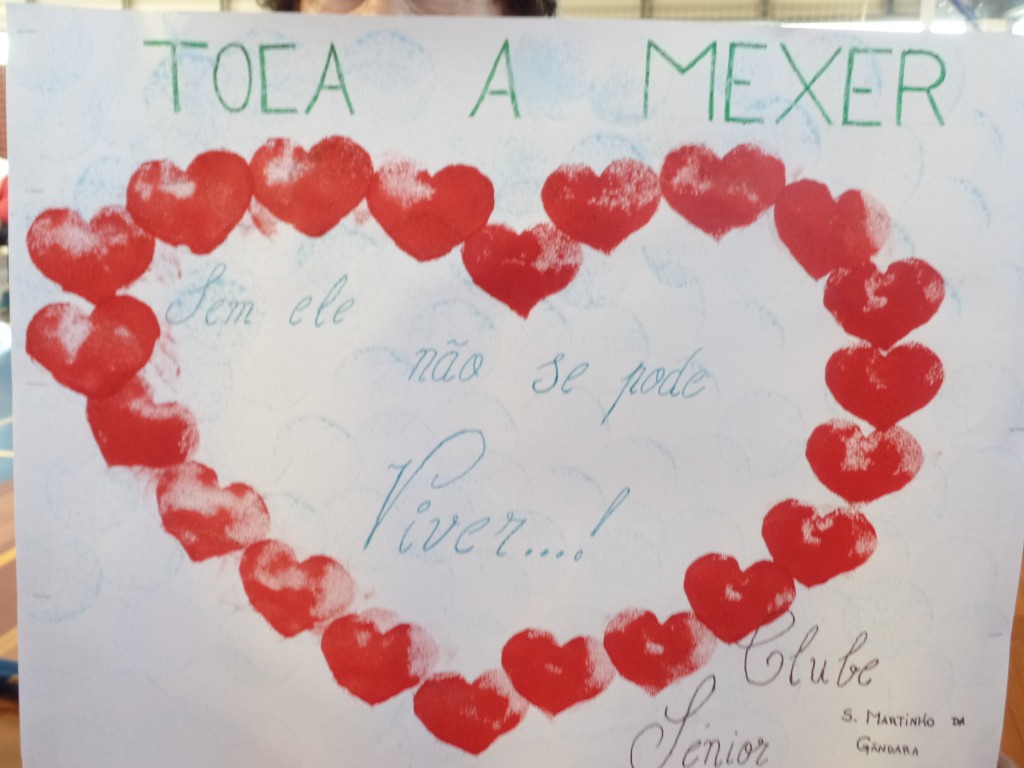 TOCA A MEXER
Sem ele
não se pode
Viver....!
Clube
Sénior
S. MARTINHO DA
GÂNDARA